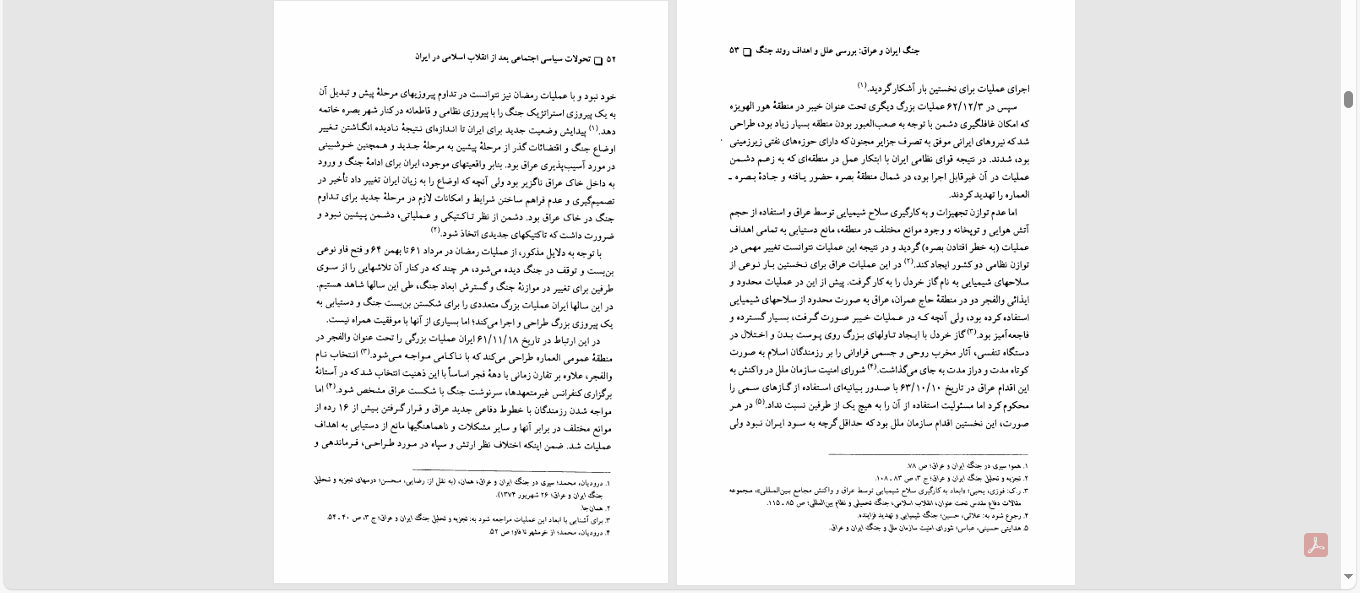 ۵۲ ❑ تحولات سیاسی اجتماعی بعد از انقلاب اسلامی در ایران
خود نبود و با عملیات رمضان نیز نتوانست در تداوم پیروزیهای مرحلهٔ پیش و تبدیل آن
به یک پیروزی استراتژیک جنگ را با پیروزی نظامی و قاطعانه در کنار شهر بصره خاتمه
دهد.(۱) پیدایش وضعیت جدید برای ایران تا اندازه‌ای نتیجهٔ نادیده انگاشتن تغییر
اوضاع جنگ و اقتضائات گذر از مرحلهٔ پیشین به مرحلهٔ جدید و همچنین خوشبینی
در مورد آسیب‌پذیری عراق بود. بنابر واقعیتهای موجود، ایران برای ادامهٔ جنگ و ورود
به داخل خاک عراق ناگزیر بود ولی آنچه که اوضاع را به زیان ایران تغییر داد تأخیر در
تصمیم‌گیری و عدم فراهم ساختن شرایط و امکانات لازم در مرحلهٔ جدید برای تداوم
جنگ در خاک عراق بود. دشمن از نظر تاکتیکی و عملیاتی، دشمن پیشین نبود و
ضرورت داشت که تاکتیکهای جدیدی اتخاذ شود.(۲)
با توجه به دلایل مذکور، از عملیات رمضان در مرداد ۶۱ تا بهمن ۶۴ و فتح فاو نوعی
بن‌بست و توقف در جنگ دیده می‌شود، هر چند که در کنار آن تلاشهایی را از سوی
طرفین برای تغییر در موازنهٔ جنگ و گسترش ابعاد جنگ، طی این سالها شاهد هستیم.
در این سالها ایران عملیات بزرگ متعددی را برای شکستن بن‌بست جنگ و دستیابی به
یک پیروزی بزرگ طراحی و اجرا می‌کند؛ اما بسیاری از آنها با موفقیت همراه نیست.
در این ارتباط در تاریخ ۶۱/۱۱/۱۸ ایران عملیات بزرگی را تحت عنوان والفجر در
منطقهٔ عمومی العماره طراحی می‌کند که با ناکامی مواجه می‌شود.(۳) انتخاب نام
والفجر، علاوه بر تقارن زمانی با دههٔ فجر اساساً با این ذهنیت انتخاب شد که در آستانهٔ
برگزاری کنفرانس غیرمتعهدها، سرنوشت جنگ با شکست عراق مشخص شود.(۴) اما
مواجه شدن رزمندگان با خطوط دفاعی جدید عراق و قرار گرفتن بیش از ۱۶ رده از
موانع مختلف در برابر آنها و سایر مشکلات و ناهماهنگیها مانع از دستیابی به اهداف
عملیات شد. ضمن اینکه اختلاف نظر ارتش و سپاه در مورد طراحی، فرماندهی و
۱. درودیان، محمد؛ سیری در جنگ ایران و عراق، همان، (به نقل از: رضایی، محسن؛ درسهای تجزیه و تحلیل
جنگ ایران و عراق؛ ۲۶ شهریور ۱۳۷۴).
۲. همان‌جا.
۳. برای آشنایی با ابعاد این عملیات مراجعه شود به: تجزیه و تحلیل جنگ ایران و عراق؛ ج ۳، ص ۴۰ ـ ۵۴.
۴. درودیان، محمد؛ از خرمشهر تا فاو؛ ص ۵۲.
جنگ ایران و عراق: بررسی علل و اهداف روند جنگ ❑ ۵۳
اجرای عملیات برای نخستین بار آشکار گردید.(۱)
سپس در ۶۲/۱۲/۳ عملیات بزرگ دیگری تحت عنوان خیبر در منطقهٔ هور الهویزه
که امکان غافلگیری دشمن با توجه به صعب‌العبور بودن منطقه بسیار زیاد بود، طراحی
شد که نیروهای ایرانی موفق به تصرف جزایر مجنون که دارای حوزه‌های نفتی زیرزمینی
بود، شدند. در نتیجه قوای نظامی ایران با ابتکار عمل در منطقه‌ای که به زعم دشمن
عملیات در آن غیرقابل اجرا بود، در شمال منطقهٔ بصره حضور یافته و جادهٔ بصره ـ
العماره را تهدید کردند.
اما عدم توازن تجهیزات و به کارگیری سلاح شیمیایی توسط عراق و استفاده از حجم
آتش هوایی و توپخانه و وجود موانع مختلف در منطقه، مانع دستیابی به تمامی اهداف
عملیات (به خطر افتادن بصره) گردید و در نتیجه این عملیات نتوانست تغییر مهمی در
توازن نظامی دو کشور ایجاد کند.(۲) در این عملیات عراق برای نخستین بار نوعی از
سلاحهای شیمیایی به نام گاز خردل را به کار گرفت. پیش از این در عملیات محدود و
ایذائی والفجر دو در منطقهٔ حاج عمران، عراق به صورت محدود از سلاحهای شیمیایی
استفاده کرده بود، ولی آنچه که در عملیات خیبر صورت گرفت، بسیار گسترده و
فاجعه‌آمیز بود.(۳) گاز خردل با ایجاد تاولهای بزرگ روی پوست بدن و اختلال در
دستگاه تنفسی، آثار مخرب روحی و جسمی فراوانی را بر رزمندگان اسلام به صورت
کوتاه مدت و دراز مدت به جای می‌گذاشت.(۴) شورای امنیت سازمان ملل در واکنش به
این اقدام عراق در تاریخ ۶۳/۱۰/۱۰ با صدور بیانیه‌ای استفاده از گازهای سمی را
محکوم کرد اما مسئولیت استفاده از آن را به هیچ یک از طرفین نسبت نداد.(۵) در هر
صورت، این نخستین اقدام سازمان ملل بود که حداقل گرچه به سود ایران نبود ولی
۱. همو؛ سیری در جنگ ایران و عراق؛ ص ۷۸.
۲. تجزیه و تحلیل جنگ ایران و عراق؛ ج ۳، ص ۸۳ ـ ۱۰۸.
۳. ر.ک: فوزی، یحیی؛ «ابعاد به کارگیری سلاح شیمیایی توسط عراق و واکنش مجامع بین‌المللی»، مجموعه
مقالات دفاع مقدس تحت عنوان، انقلاب اسلامی، جنگ تحمیلی و نظام بین‌المللی؛ ص ۸۵ ـ ۱۱۵.
۴. رجوع شود به: علائی، حسین؛ جنگ شیمیایی و تهدید فزاینده.
۵. هدایتی خمینی، عباس؛ شورای امنیت سازمان ملل و جنگ ایران و عراق.